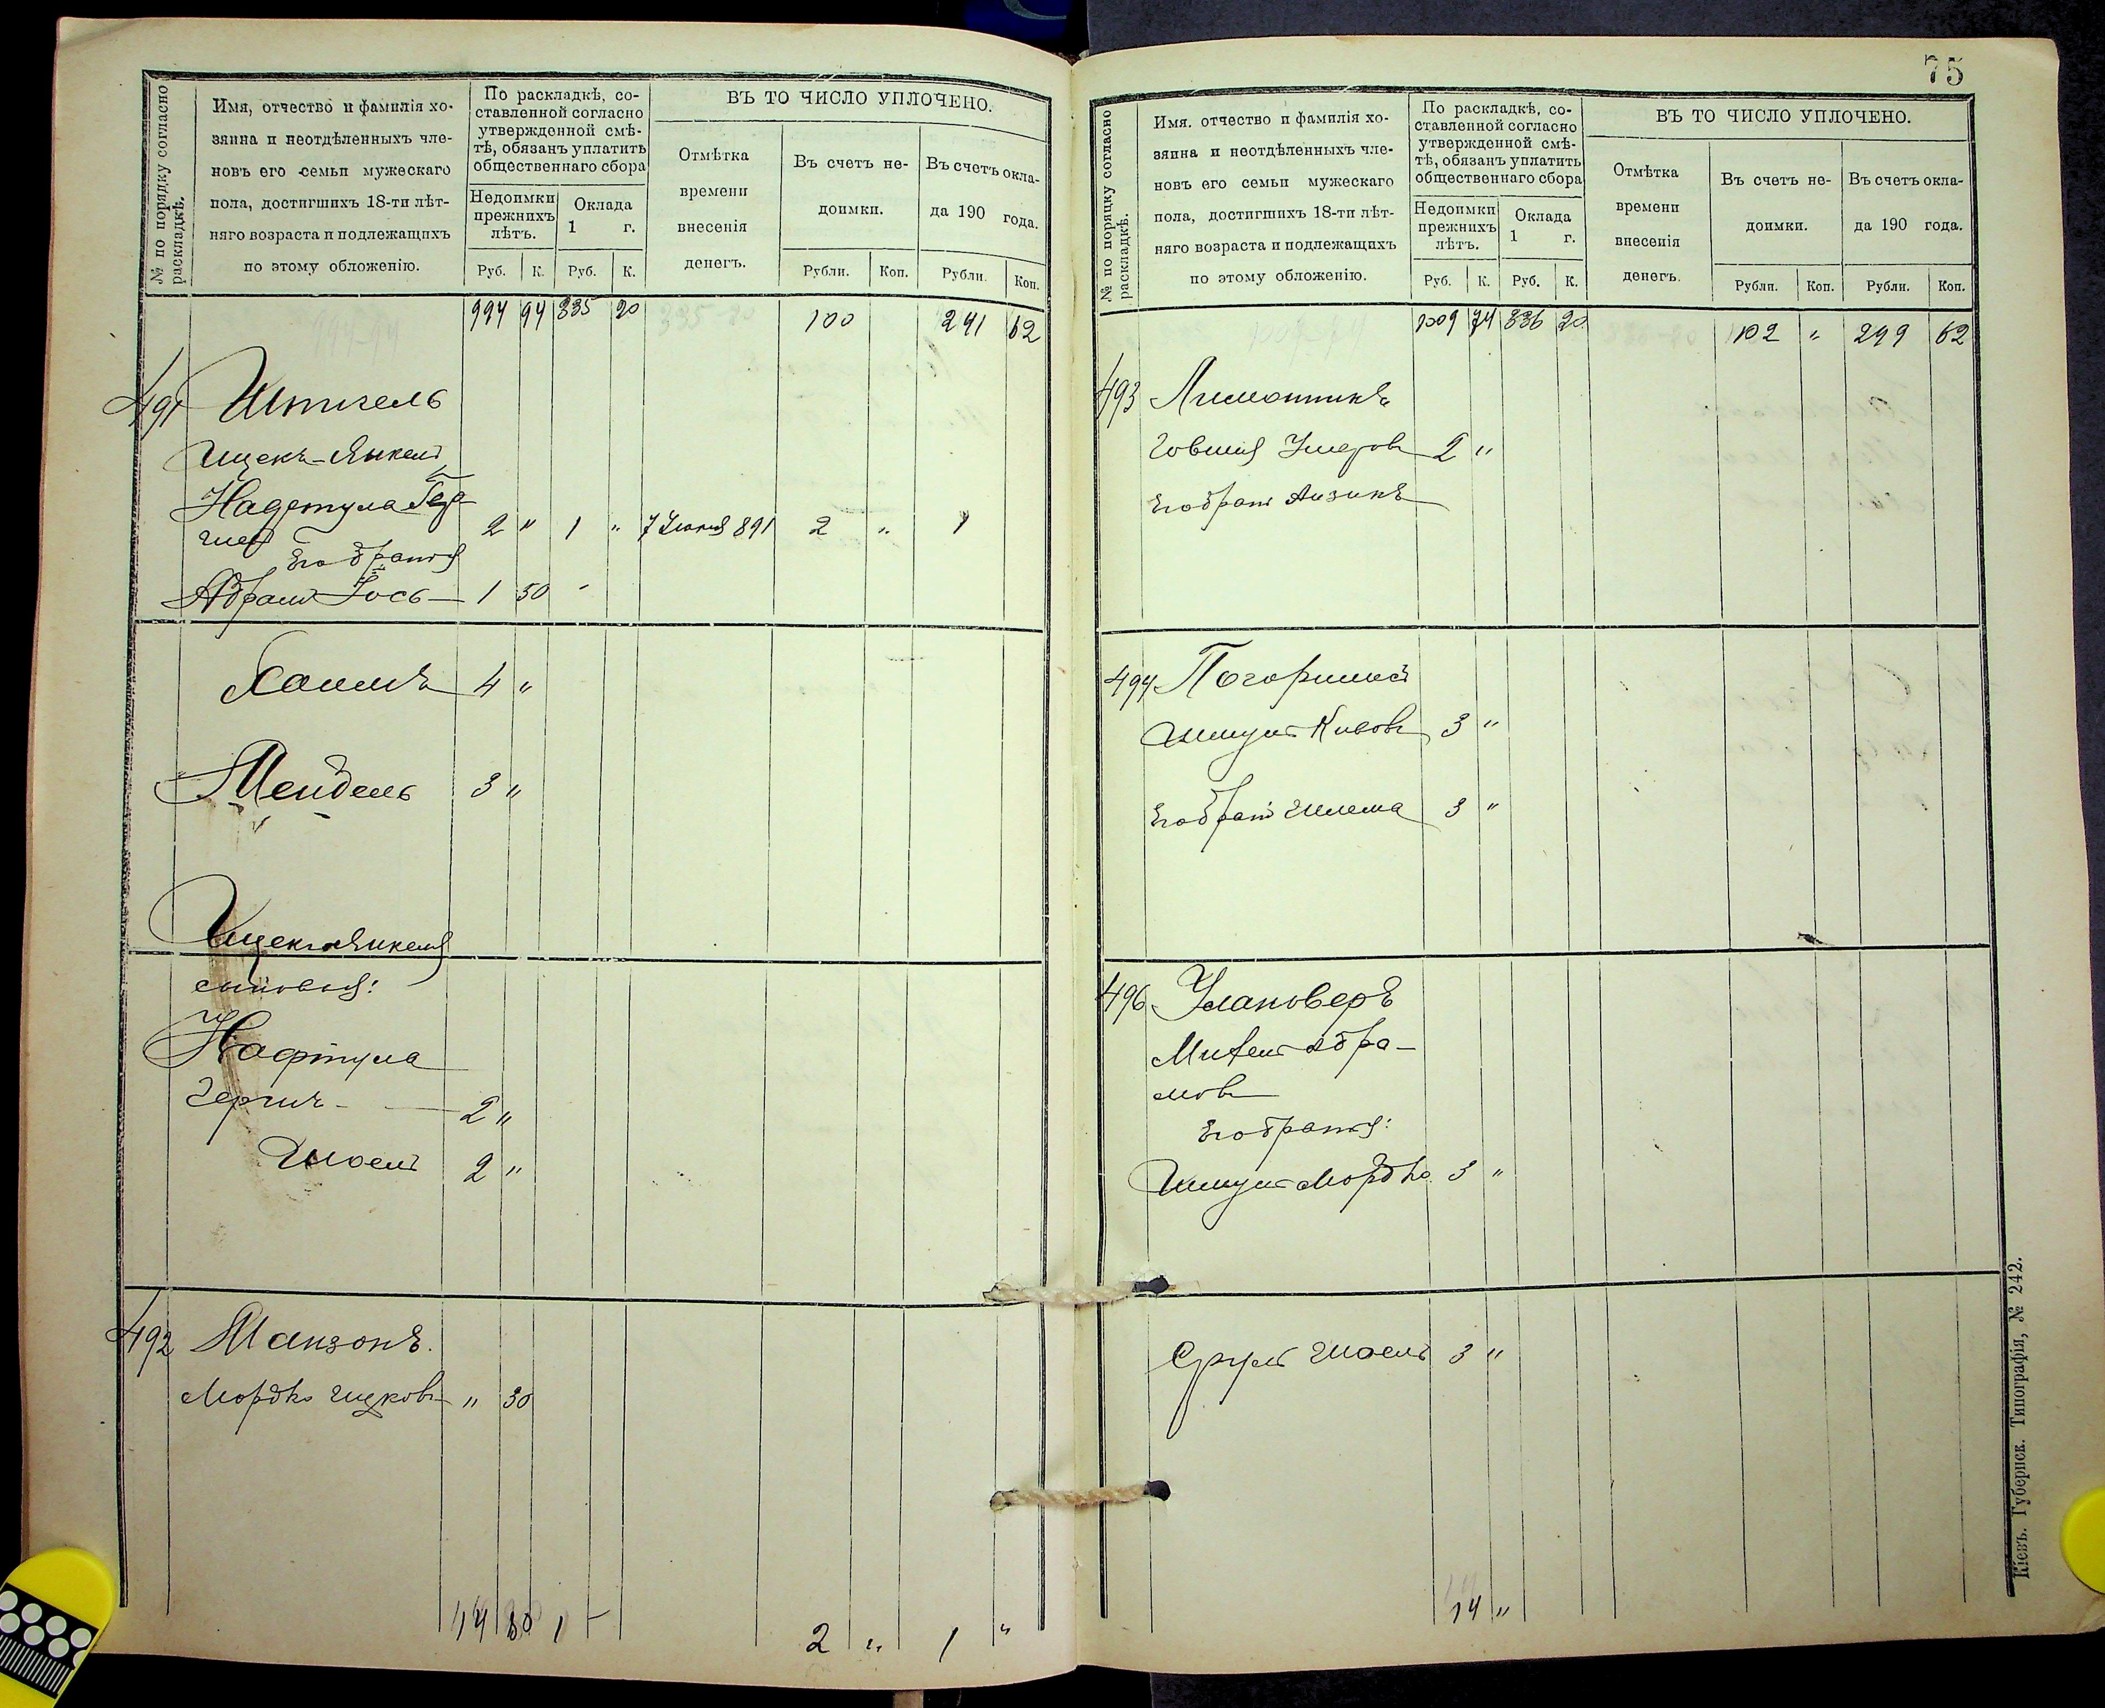 № по порядку согласно раскладкѣ.
Имя, отчество и фамилія хо-
зяина и неотдѣленныхъ чле-
новъ его семьи мужескаго
пола, достигшихъ 18-ти лѣт-
няго возраста и подлежащихъ
по этому обложенію.
По раскладкѣ, со-
ставленной согласно
утвержденной смѣ-
тѣ, обязанъ уплатить
общественнаго сбора
Недоимки
прежнихъ
лѣтъ.
Оклада
1 г.
Руб. К. Руб. К.
ВЪ ТО ЧИСЛО УПЛОЧЕНО.
Отмѣтка
времени
внесенія
денегъ.
Въ счетъ не-
доимки.
Въ счетъ окла-
да 190 года.
Рубли. Коп. Рубли. Коп.
994 94 335 20 100 241 62
491 Штигель
Ицекъ-Янкель
2 " 1 " 7 891 2 " 1
Его братья
Абрамъ Іось 1 50 -
Хаимъ 4 "
Мендель 3 "
сыновья:
Нафтула
Гершъ 2 "
Шоель 2 "
492 Манзонъ.
Мордко Ицковъ " 30
14 80 1 - 2 " 1 "
75
№ по порядку согласно раскладкѣ.
Имя, отчество и фамилія хо-
зяина и неотдѣленныхъ чле-
новъ его семьи мужескаго
пола, достигшихъ 18-ти лѣт-
няго возраста и подлежащихъ
по этому обложенію.
По раскладкѣ, со-
ставленной согласно
утвержденной смѣ-
тѣ, обязанъ уплатить
общественнаго сбора
Недоимки
прежнихъ
лѣтъ.
Оклада
1 г.
Руб. К. Руб. К.
ВЪ ТО ЧИСЛО УПЛОЧЕНО.
Отмѣтка
времени
внесенія
денегъ.
Въ счетъ не-
доимки.
Въ счетъ окла-
да 190 года.
Рубли. Коп. Рубли. Коп.
1009 74 336 20 102 " 249 62
493
Говшія 2 "
Его братъ Аизикъ
494
3 "
Его братъ Шлема 3 "
496 Улановеръ
Михель Абра-
мовъ
Его братья:
Шмуль Мордко 3 "
Сруль Шоель 3 "
14 "
Кіевъ. Губернск. Типографія, № 242.